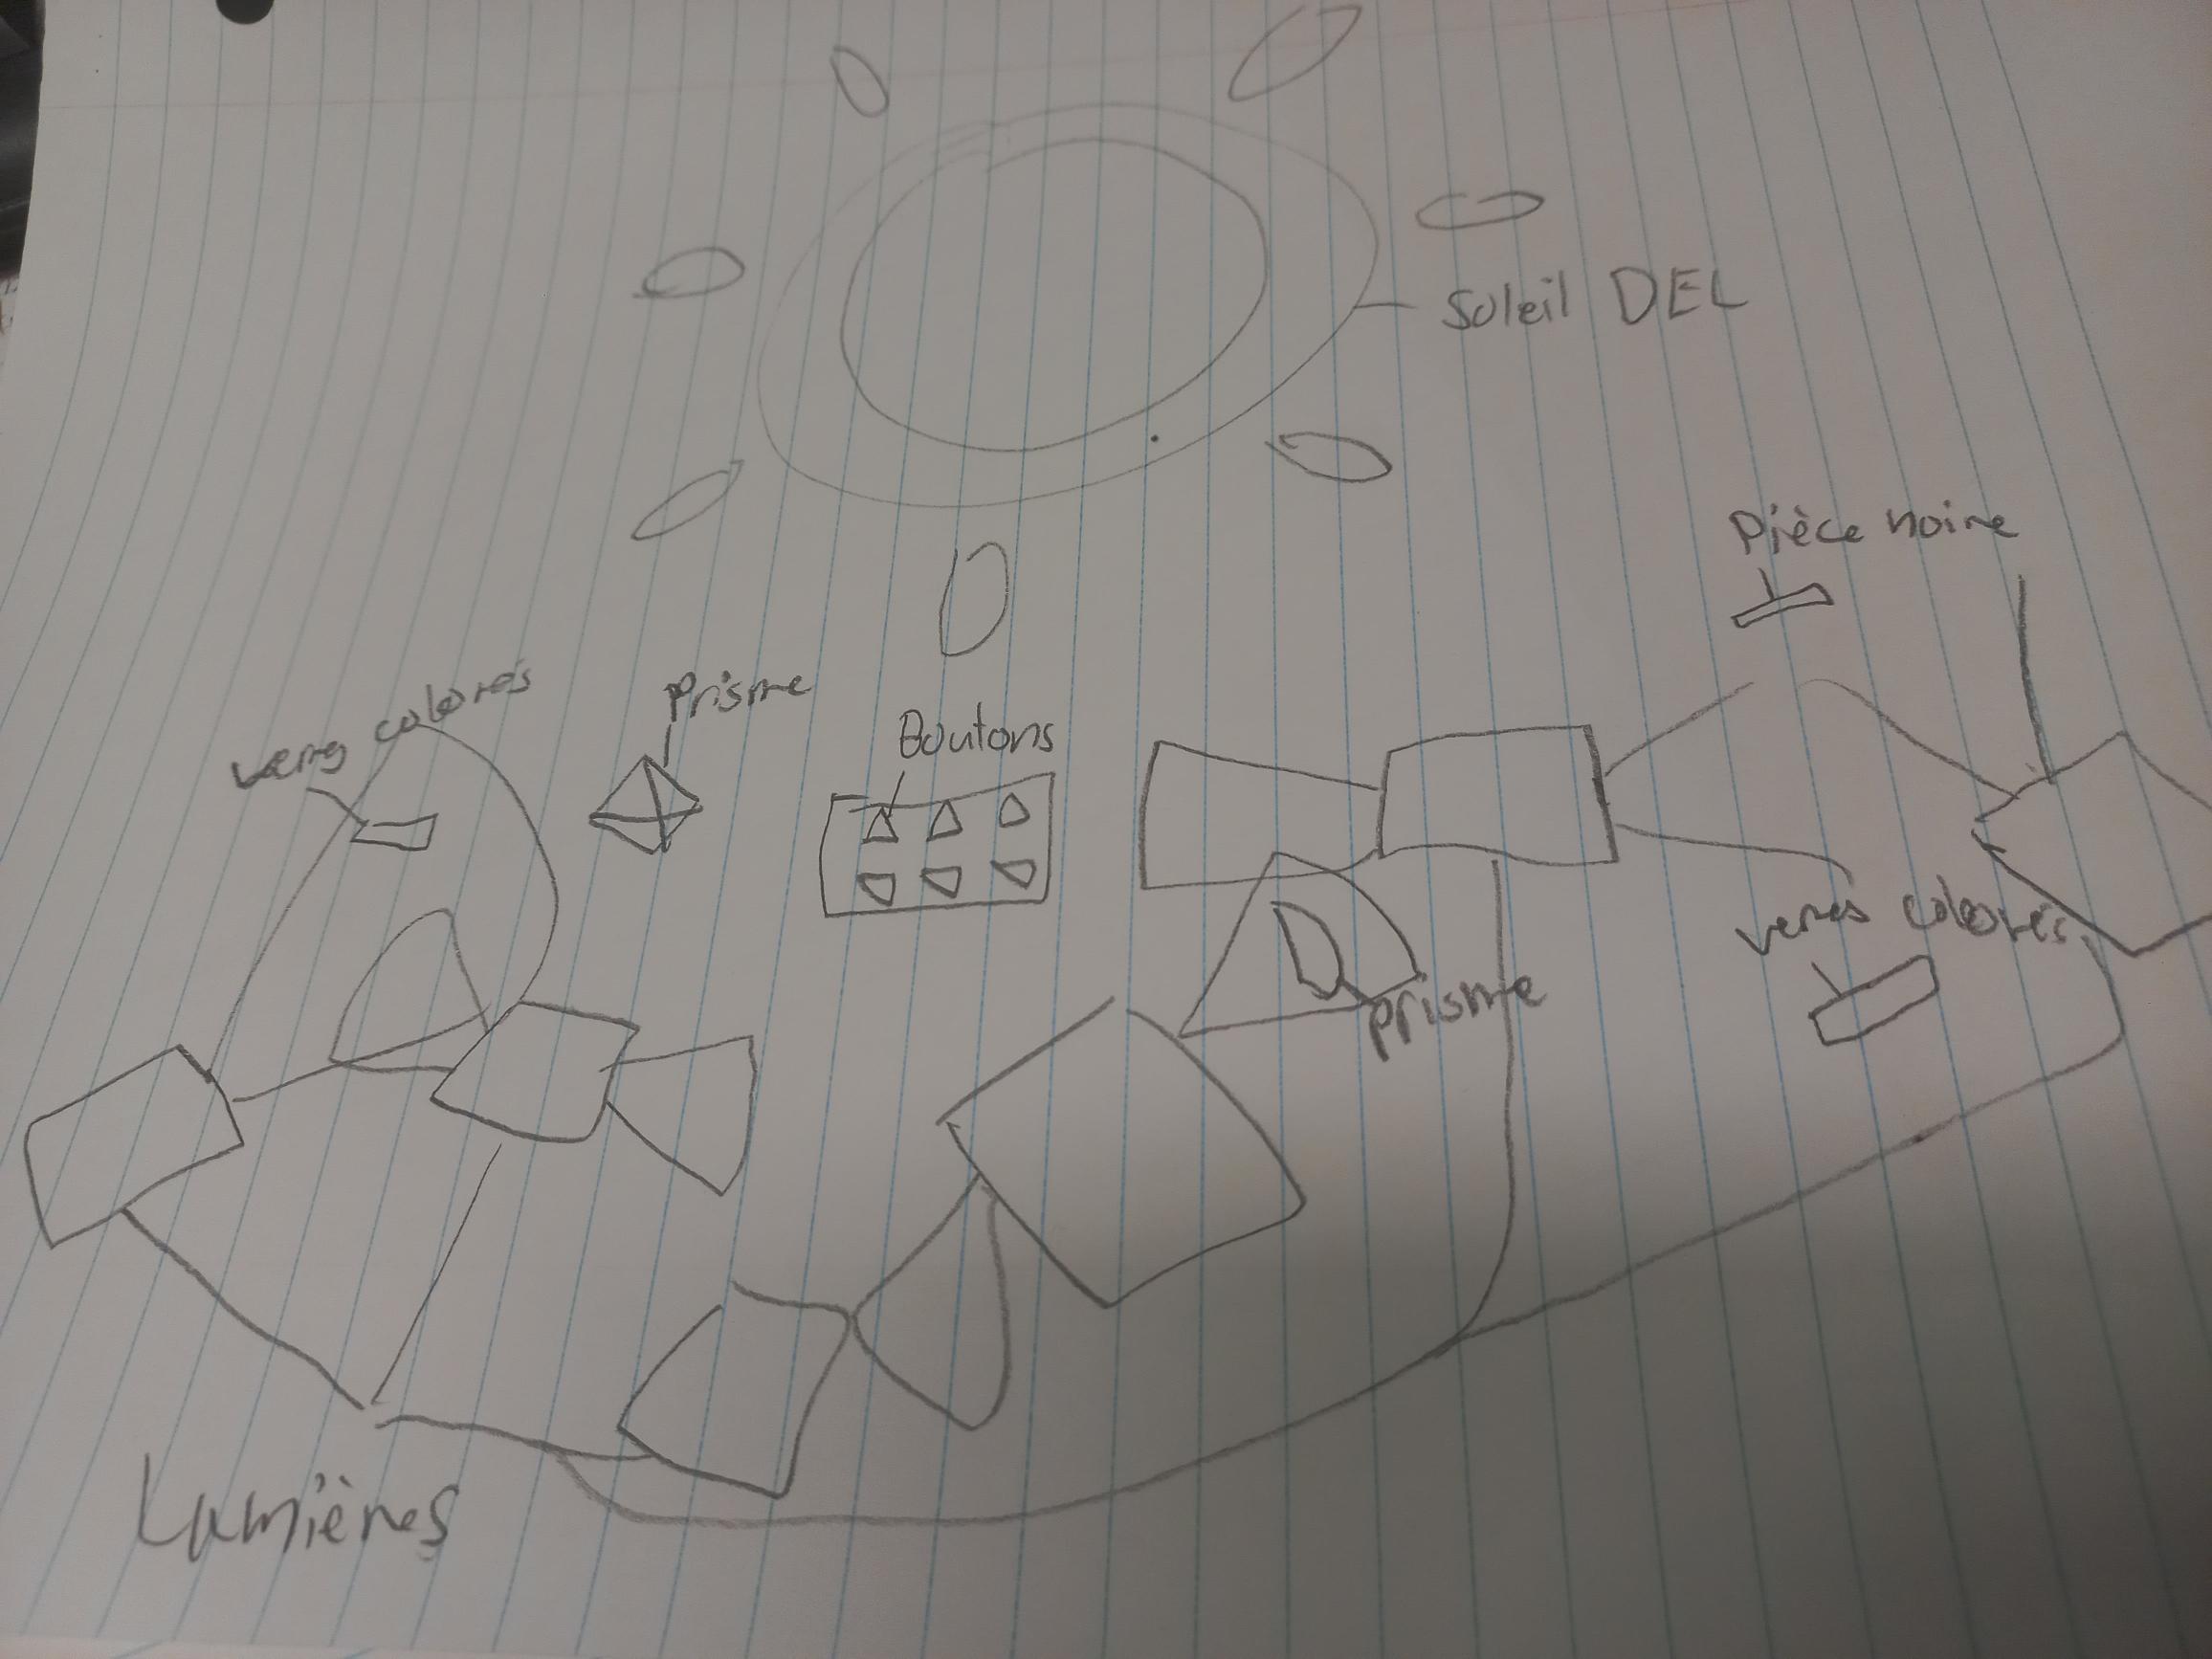 Soleil DEL
Pièce noire
verres colorés
Prisme
Boutons
verres colorés
Prisme
Lumières